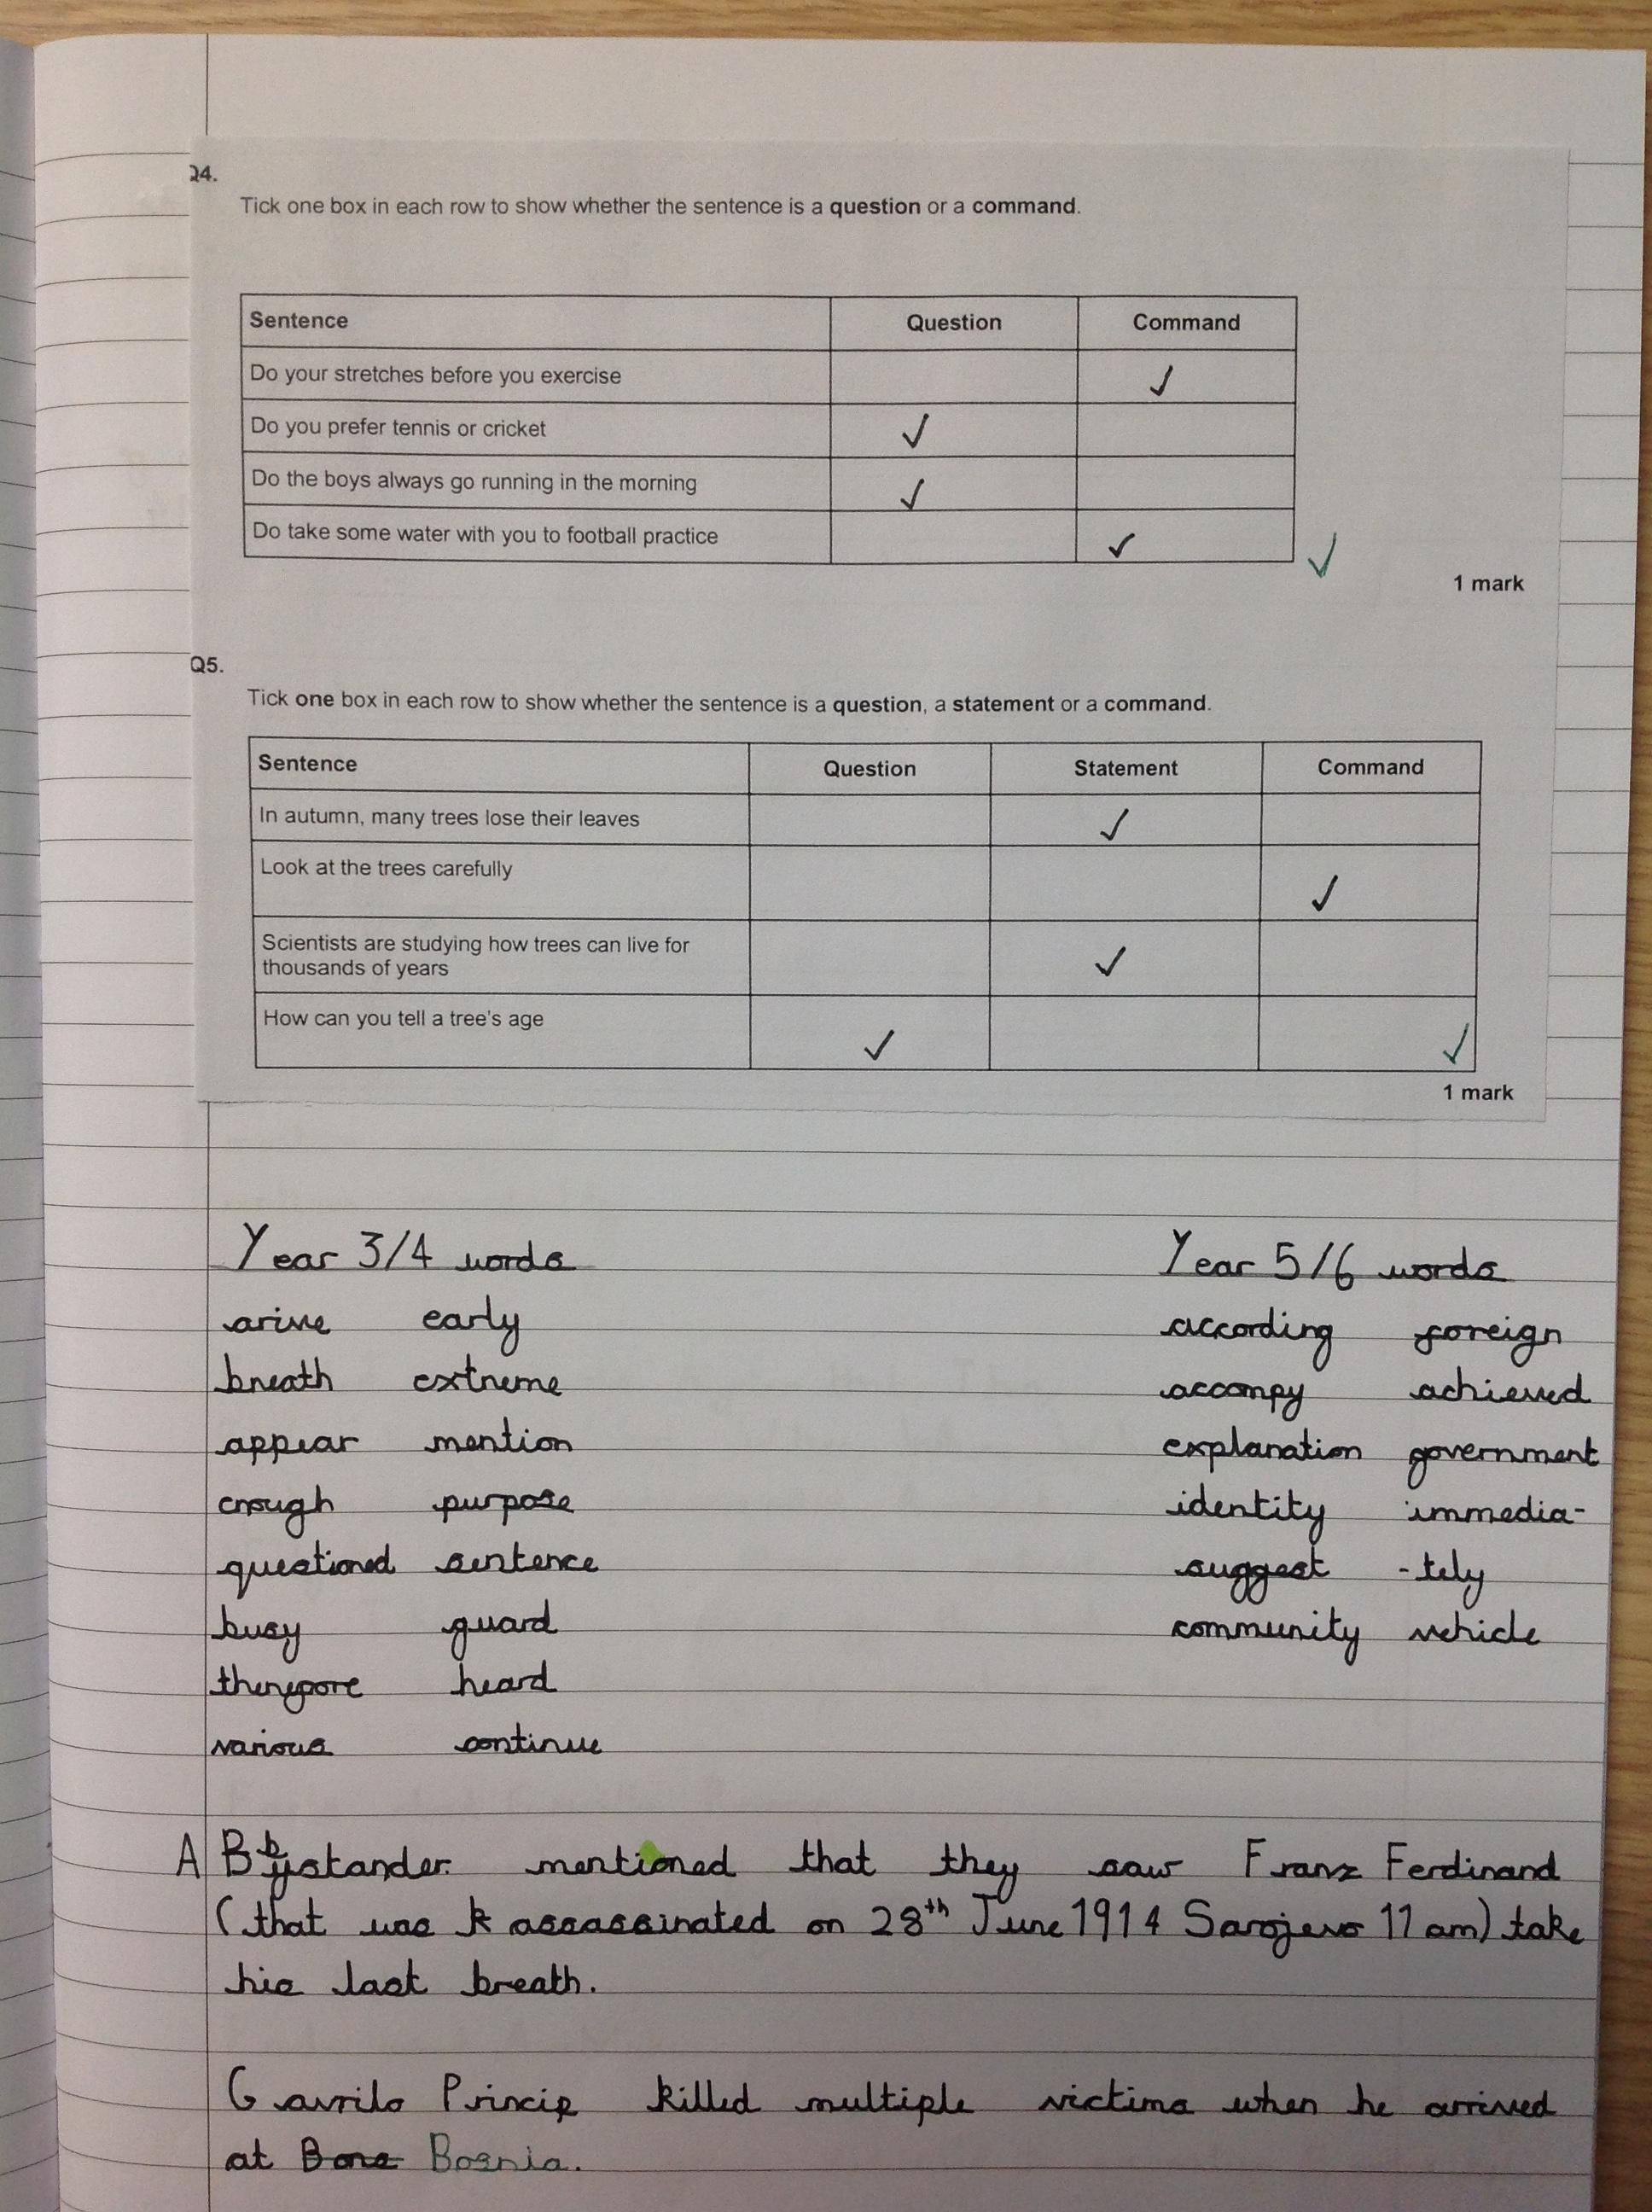 Q4.
Tick one box in each row to show whether the sentence is a question or a command.
Sentence Question Command
Do your stretches before you exercise ✓
Do you prefer tennis or cricket ✓
Do the boys always go running in the morning ✓
Do take some water with you to football practice ✓ ✓
1 mark
Q5.
Tick one box in each row to show whether the sentence is a question, a statement or a command.
Sentence Question Statement Command
In autumn, many trees lose their leaves ✓
Look at the trees carefully ✓
Scientists are studying how trees can live for
thousands of years ✓
How can you tell a tree's age ✓ ✓
1 mark
Year 3/4 words Year 5/6 words
arive early according foreign
breath extreme accompy achieved
appear mention explanation government
enough purpose identity immedia-
questioned sentence suggest -tely
busy guard community vehicle
therefore heard
various continue
A bystander mentioned that they saw Franz Ferdinand
(that was assassinated on 28th June 1914 Sarojevo 11am) take
his last breath.
Gavrilo Princip killed multiple victims when he arrived
at Bosnia.